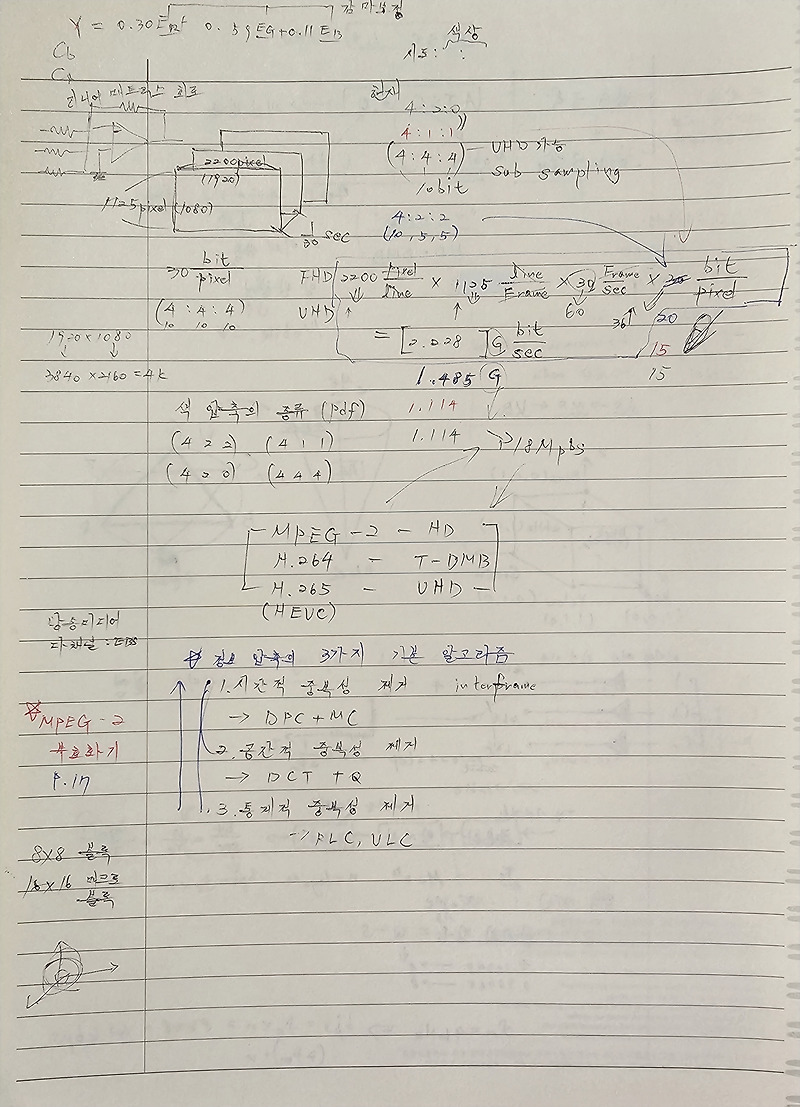 감마보정
Y = 0.30ER + 0.59EG + 0.11EB
Cb
색상
리니어 매트릭스 회로
현재
4:2:0
4:1:1
(4:4:4) - UHD 가능
10bit
sub sampling
2200pixel
(1920)
1125pixel (1080)
1/30 sec
4:2:2
(10,5,5)
30 bit/pixel
(4:4:4)
10 10 10
FHD 2200 pixel/line × 1125 line/Frame × 30 Frame/sec × 30 bit/pixel
UHD
60
36
20
= [2.228] G bit/sec
15
1920×1080
3840×2160=4k
1.485 G
15
색 압축의 종류 (pdf)
1.114
(4 2 2) (4 1 1)
1.114
18Mpbs
(4 2 0) (4 4 4)
MPEG-2 - HD
H.264 - T-DMB
H.265 - UHD
(HEVC)
방송미디어
다채널 : EBS
정보 압축의 3가지 기본 알고리즘
1. 시간적 중복성 제거 interframe
→ DPC + MC
2. 공간적 중복성 제거
→ DCT + Q
3. 통계적 중복성 제거
→ FLC, VLC
MPEG-2
부호화기
P.17
8×8 블록
16×16 매크로
블록